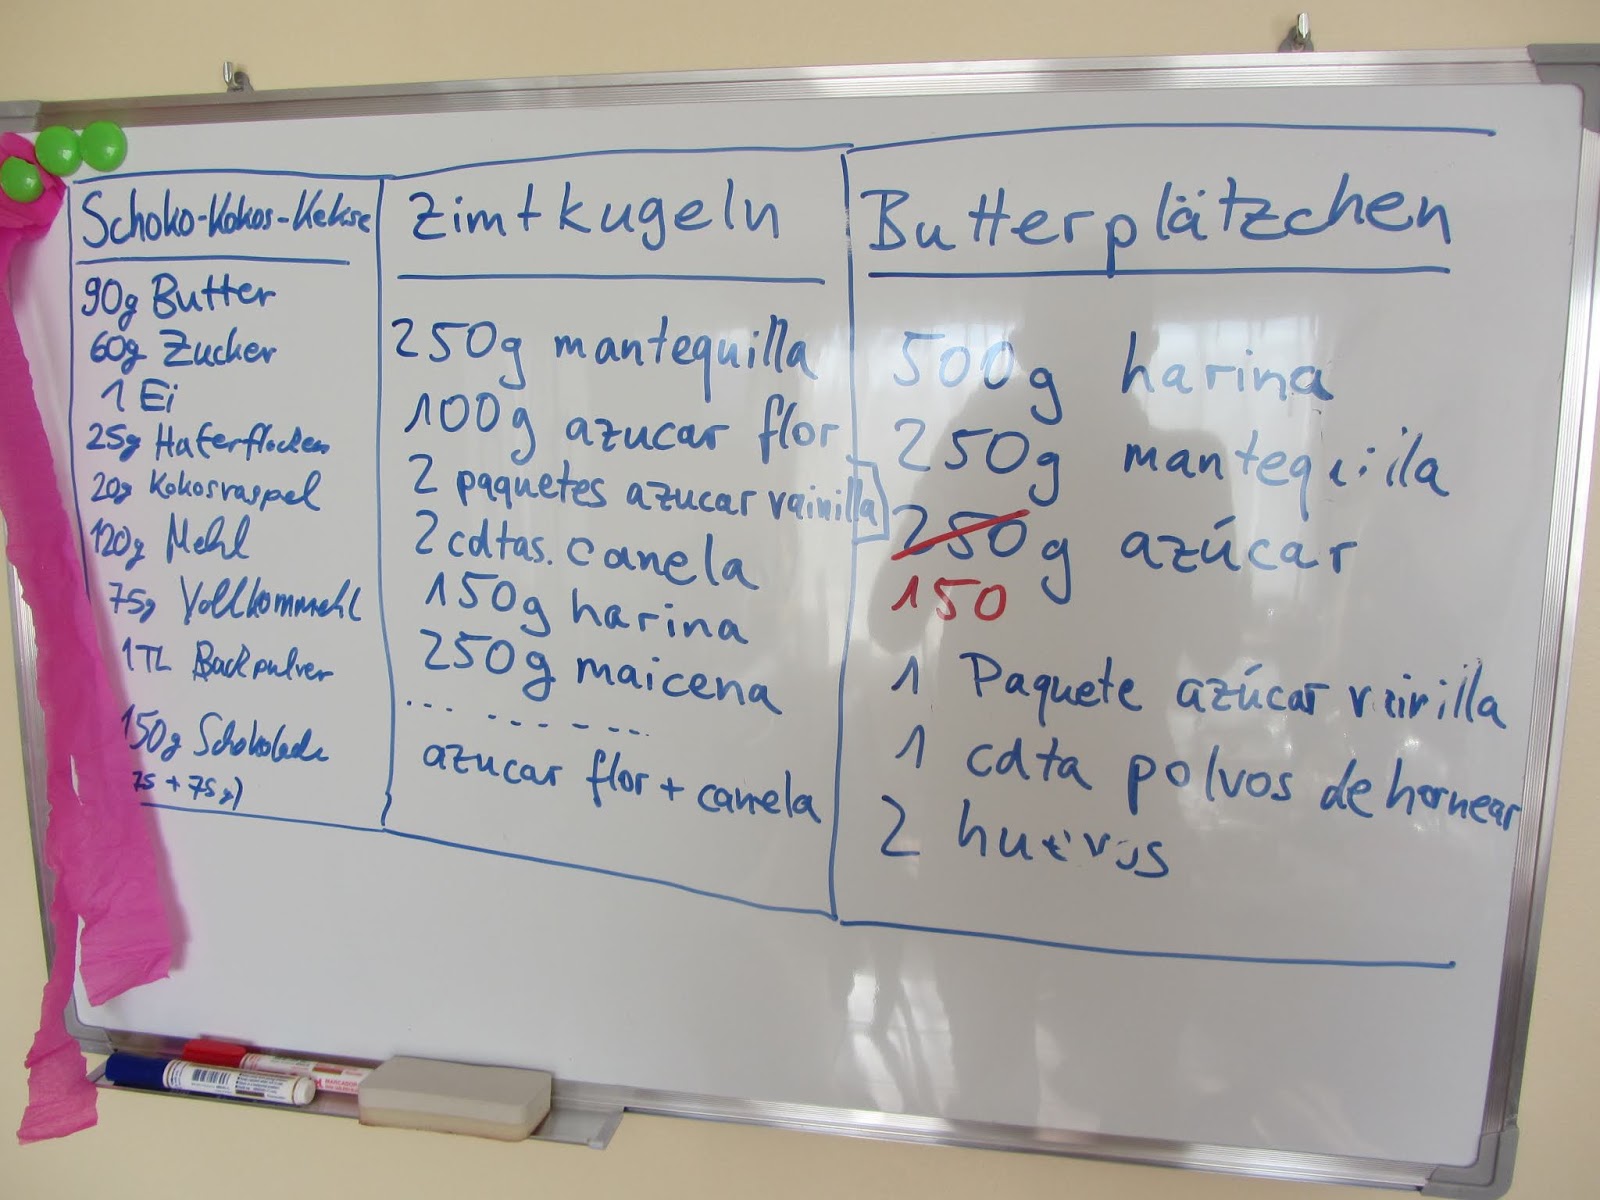 Schoko-Kokos-Kekse
90g Butter
60g Zucker
1 Ei
25g Haferflocken
20g Kokosraspel
120g Mehl
75g Vollkornmehl
1TL Backpulver
150g Schokolade
75 + 75g)
Zimtkugeln
250g mantequilla
100g azucar flor
2 paquetes azucar vainilla
2 cdtas. canela
150g harina
250g maicena
azucar flor + canela
Butterplätzchen
500g harina
250g mantequilla
250g azúcar
150
1 Paquete azúcar vainilla
1 cdta polvos de hornear
2 huevos
MARCADOR